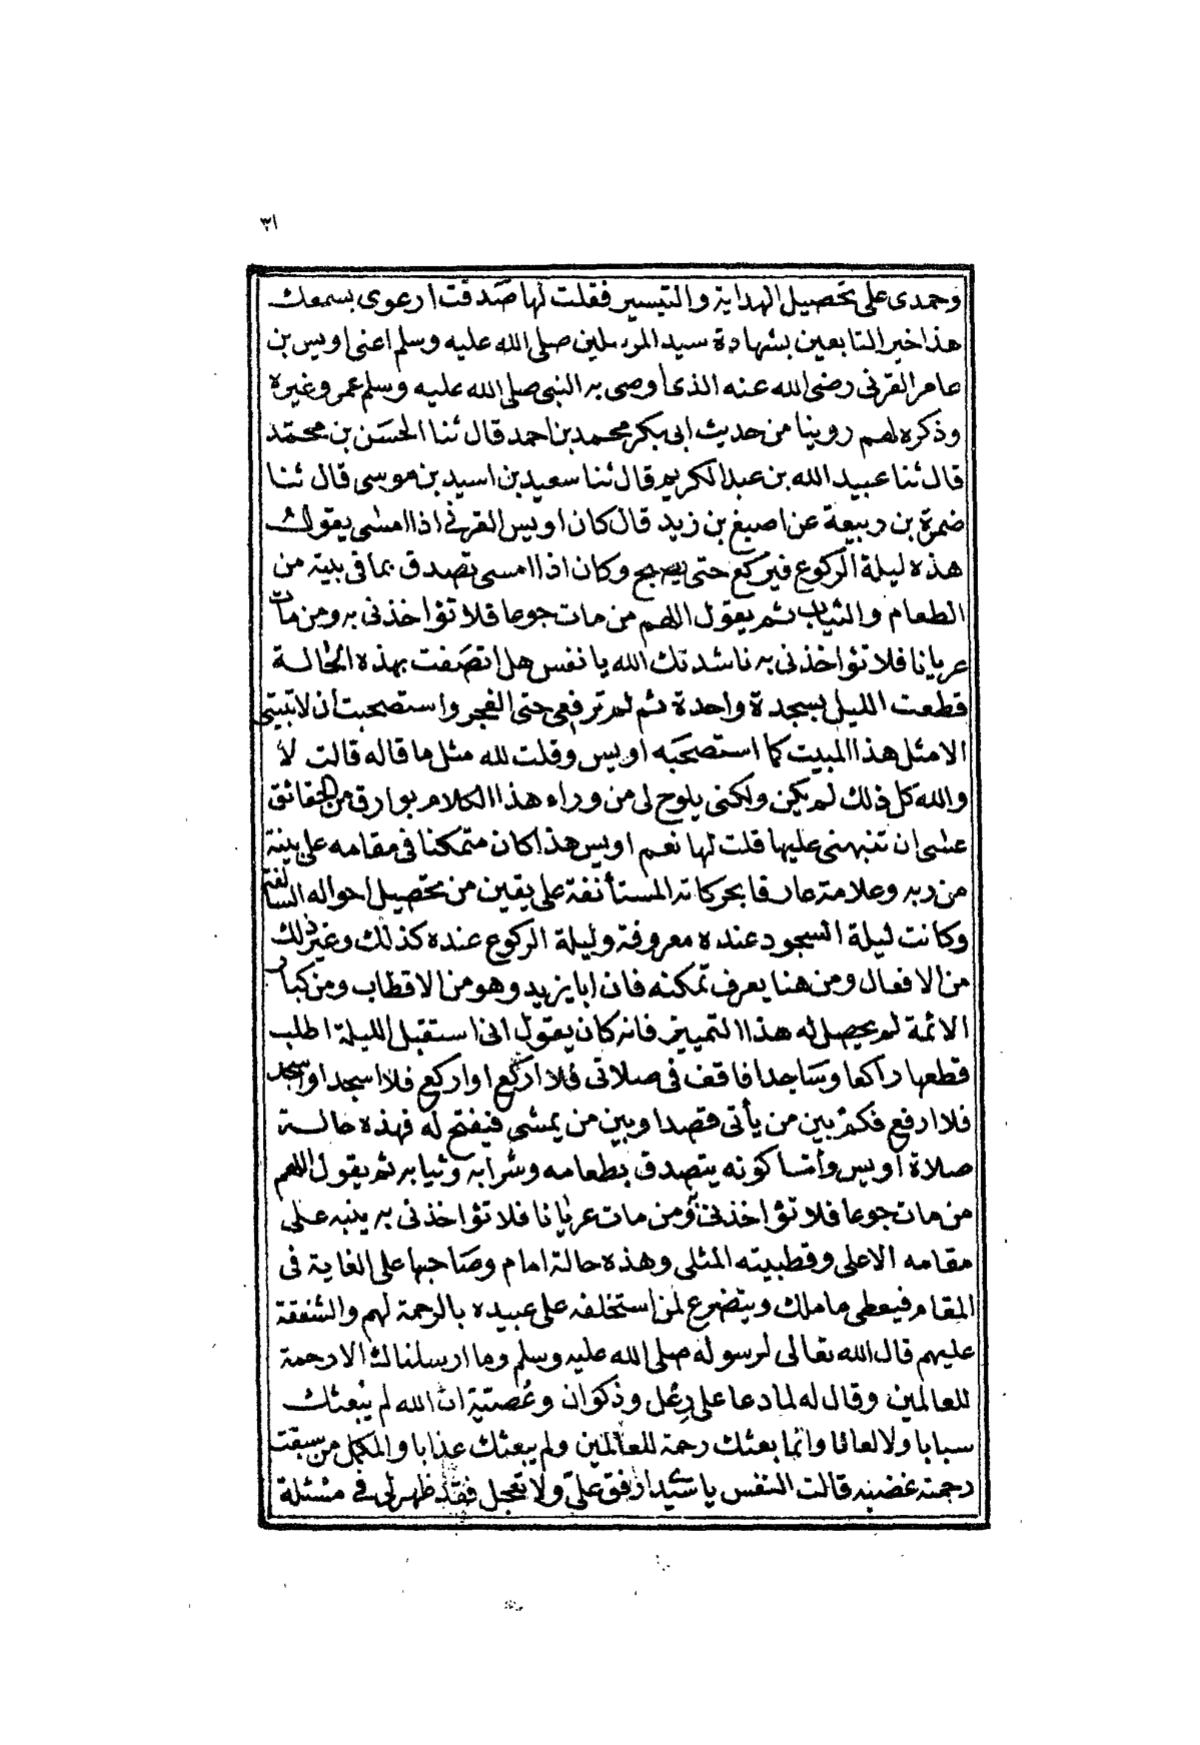 ٣١
وحمدى على تحصيل الهداية والتيسير فقلت لها صدقت ارعوى بسمعك
هذا خير التابعين بشهادة سيد المرسلين صلى الله عليه وسلم اعنى اويس بن
عامر القرنى رضى الله عنه الذى اوصى به النبى صلى الله عليه وسلم عمر وغيره
وذكره لهم روينا من حديث ابى بكر محمد بن احمد قال ثنا الحسن بن محمد
قال ثنا عبيد الله بن عبد الكريم قال ثنا سعيد بن اسيد بن موسى قال ثنا
ضمرة بن ربيعة عن اصبغ بن زيد قال كان اويس القرنى اذا امسى يقول
هذه ليلة الركوع فيركع حتى يصبح وكان اذا امسى تصدق بما فى بيته من
الطعام والثياب ثم يقول اللهم من مات جوعا فلا تؤاخذنى به ومن مات
عريانا فلا تؤاخذنى به ناشدتك الله يا نفس هل اتصفت بهذه الحالة
قطعت الليل بسجدة واحدة ثم لم ترفعى حتى الفجر واستصحبت ان لا تبيتى
الا مثل هذا المبيت كما استصحبه اويس وقلت لله مثل ما قاله قالت لا
والله كل ذلك لم يكن ولكنى يلوح لى من وراء هذا الكلام بوارق من الحقائق
عسى ان تنبهنى عليها قلت لها نعم اويس هذا كان متمكنا فى مقامه على بينة
من ربه وعلامة عارفا بحركاته المستأنفة على يقين من تحصيل احواله السالفة
وكانت ليلة السجود عنده معروفة وليلة الركوع عنده كذلك وغير ذلك
من الافعال ومن هنا يعرف تمكنه فان ابا يزيد وهو من الاقطاب ومن كبار
الائمة لم يحصل له هذا التمييز فانه كان يقول انى استقبل الليلة اطلب
قطعها راكعا وساجدا فاقف فى صلاتى فلا اركع او اركع فلا اسجد او اسجد
فلا ارفع فكم بين من يأتى قصدا وبين من يمشى فيفتح له فهذه حالة
صلاة اويس وأما كونه يتصدق بطعامه وشرابه وثيابه ثم يقول اللهم
من مات جوعا فلا تؤاخذنى ومن مات عريانا فلا تؤاخذنى به ينبه على
مقامه الاعلى وقطبيته المثلى وهذه حالة امام وصاحبها على الغاية فى
المقام فيعطى ما ملك ويتضرع لمن استخلفه على عبيده بالرحمة لهم والشفقة
عليهم قال الله تعالى لرسوله صلى الله عليه وسلم وما ارسلناك الا رحمة
للعالمين وقال له لما دعا على رعل وذكوان وعُصيّة ان الله لم يبعثك
سبابا ولا لعانا وانما بعثك رحمة للعالمين ولم يبعثك عذابا والمكمل من سبقت
رحمته غضبه قالت النفس يا سيد ارفق علىّ ولا تعجل فقد ظهر لى فى مسئلة